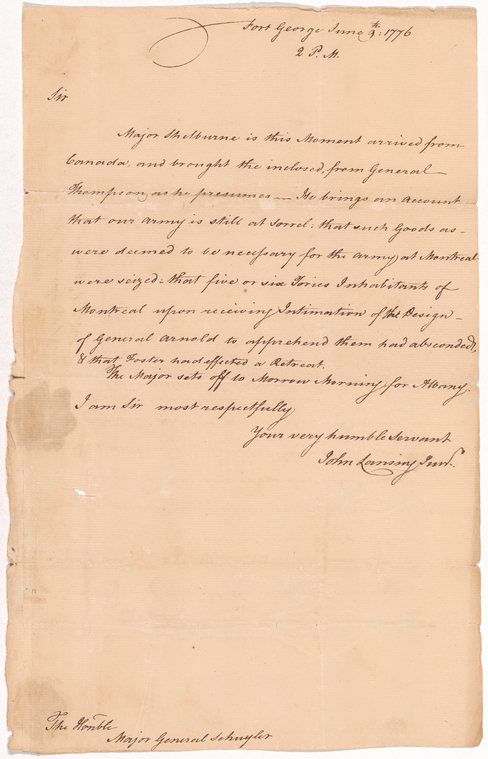 Fort George June 9th: 1776
2 P. M.
Sir
Major Shelburne is this Moment arrived from
Canada, and brought the inclosed from General
Thompson, as he presumes — He brings an Account
that our Army is still at Sorrel: that such Goods as
were deemed to be necessary for the Army at Montreal
were seized – that five or six Tories Inhabitants of
Montreal upon receiving Intimation of the Design
of General Arnold to apprehend them had absconded,
& that Foster had effected a Retreat.
The Major sets off to Morrow Morning for Albany.
I am Sir most respectfully
Your very humble Servant
John Lansing Junr.
The Honble
Major General Schuyler